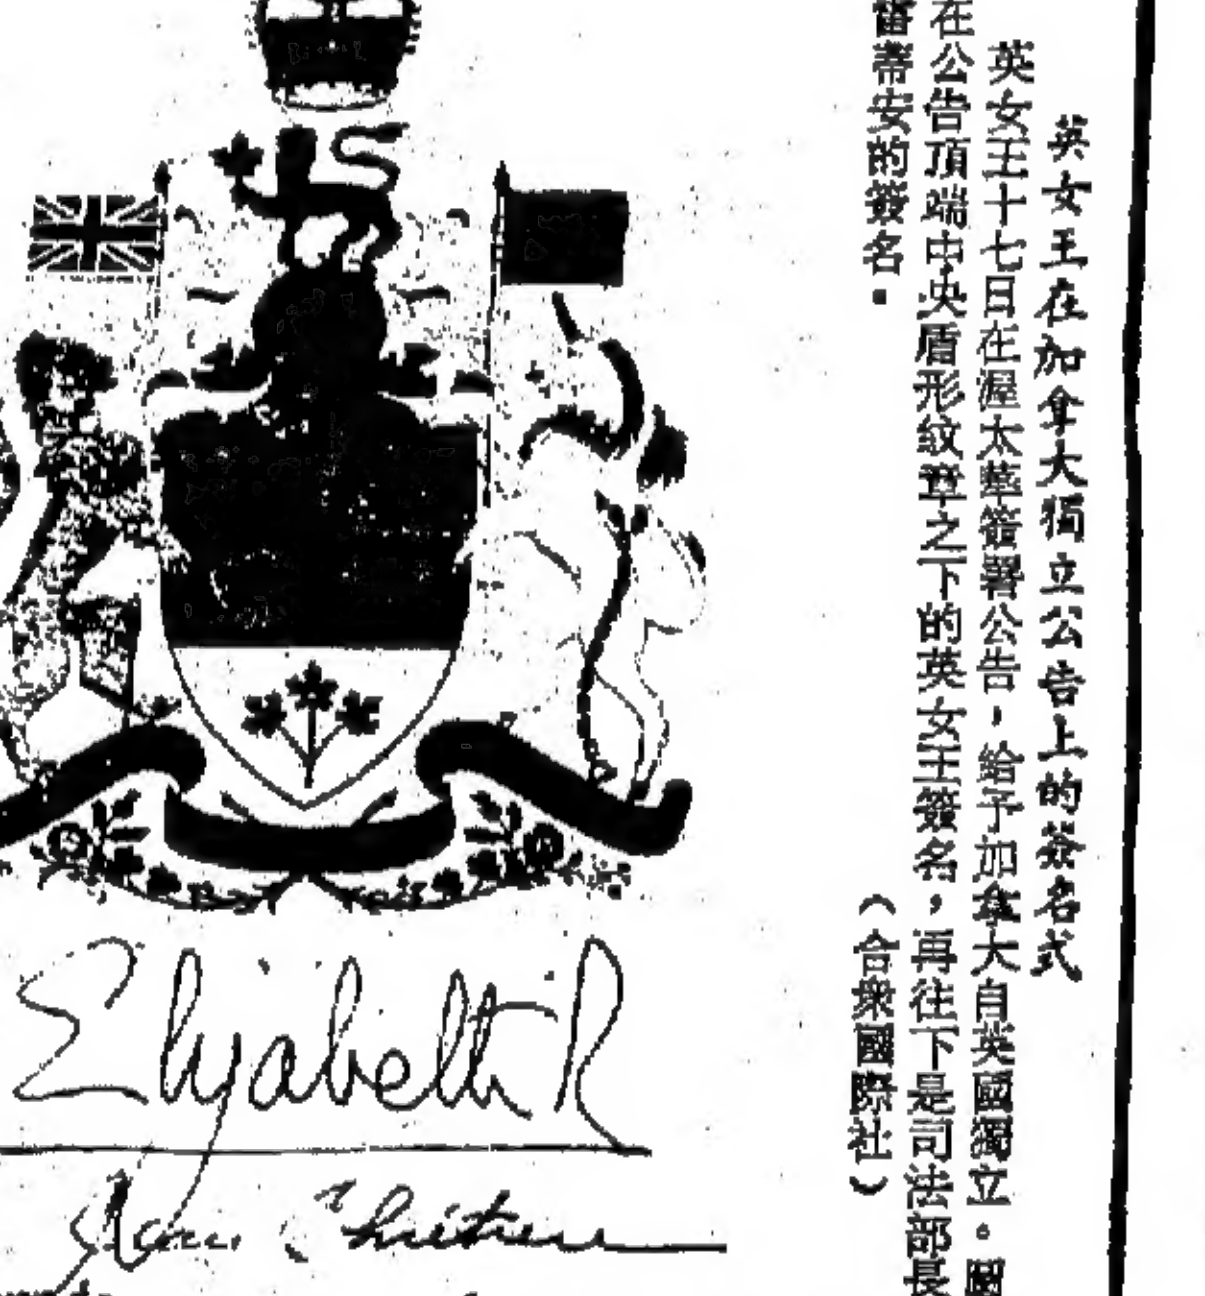 英女王在加拿大獨立公告上的簽名式
英女王十七日在渥太華簽署公告，給予加拿大自英國獨立。圖
在公告頂端中央盾形紋章之下的英女王簽名，再往下是司法部長
蒂安的簽名。
（合衆國際社）
Elizabeth R
Jean Chrétien